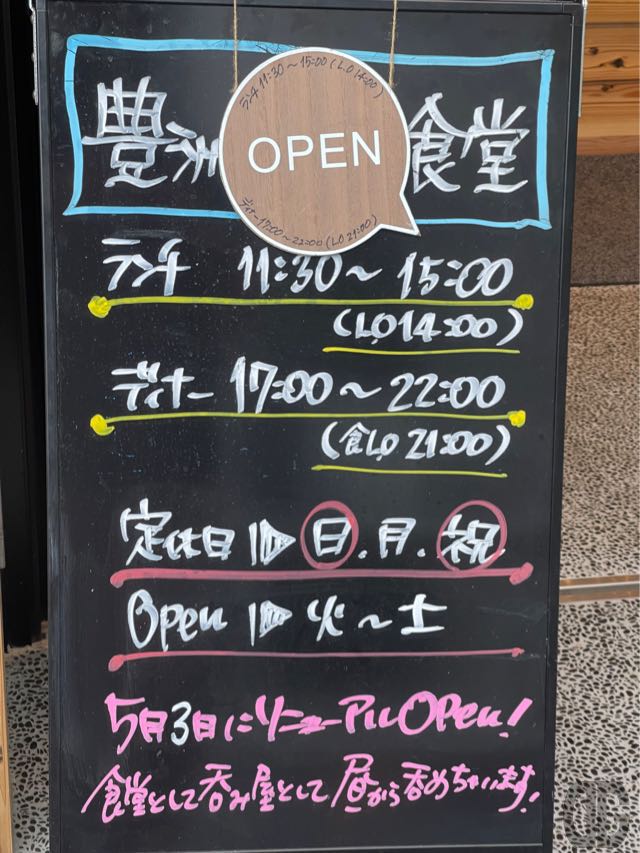 ランチ 11:30〜15:00 (L.O 14:00)
OPEN
ディナー 17:00〜22:00 (L.O 21:00)
豊 食堂
ランチ 11:30〜15:00
(L.O 14:00)
ディナー 17:00〜22:00
(食L.O 21:00)
定休日 ▶ 日.月.祝
Open ▶ 火〜土
5日3日にリニューアルOPen!
食堂として呑み屋として昼から呑めちゃいます!